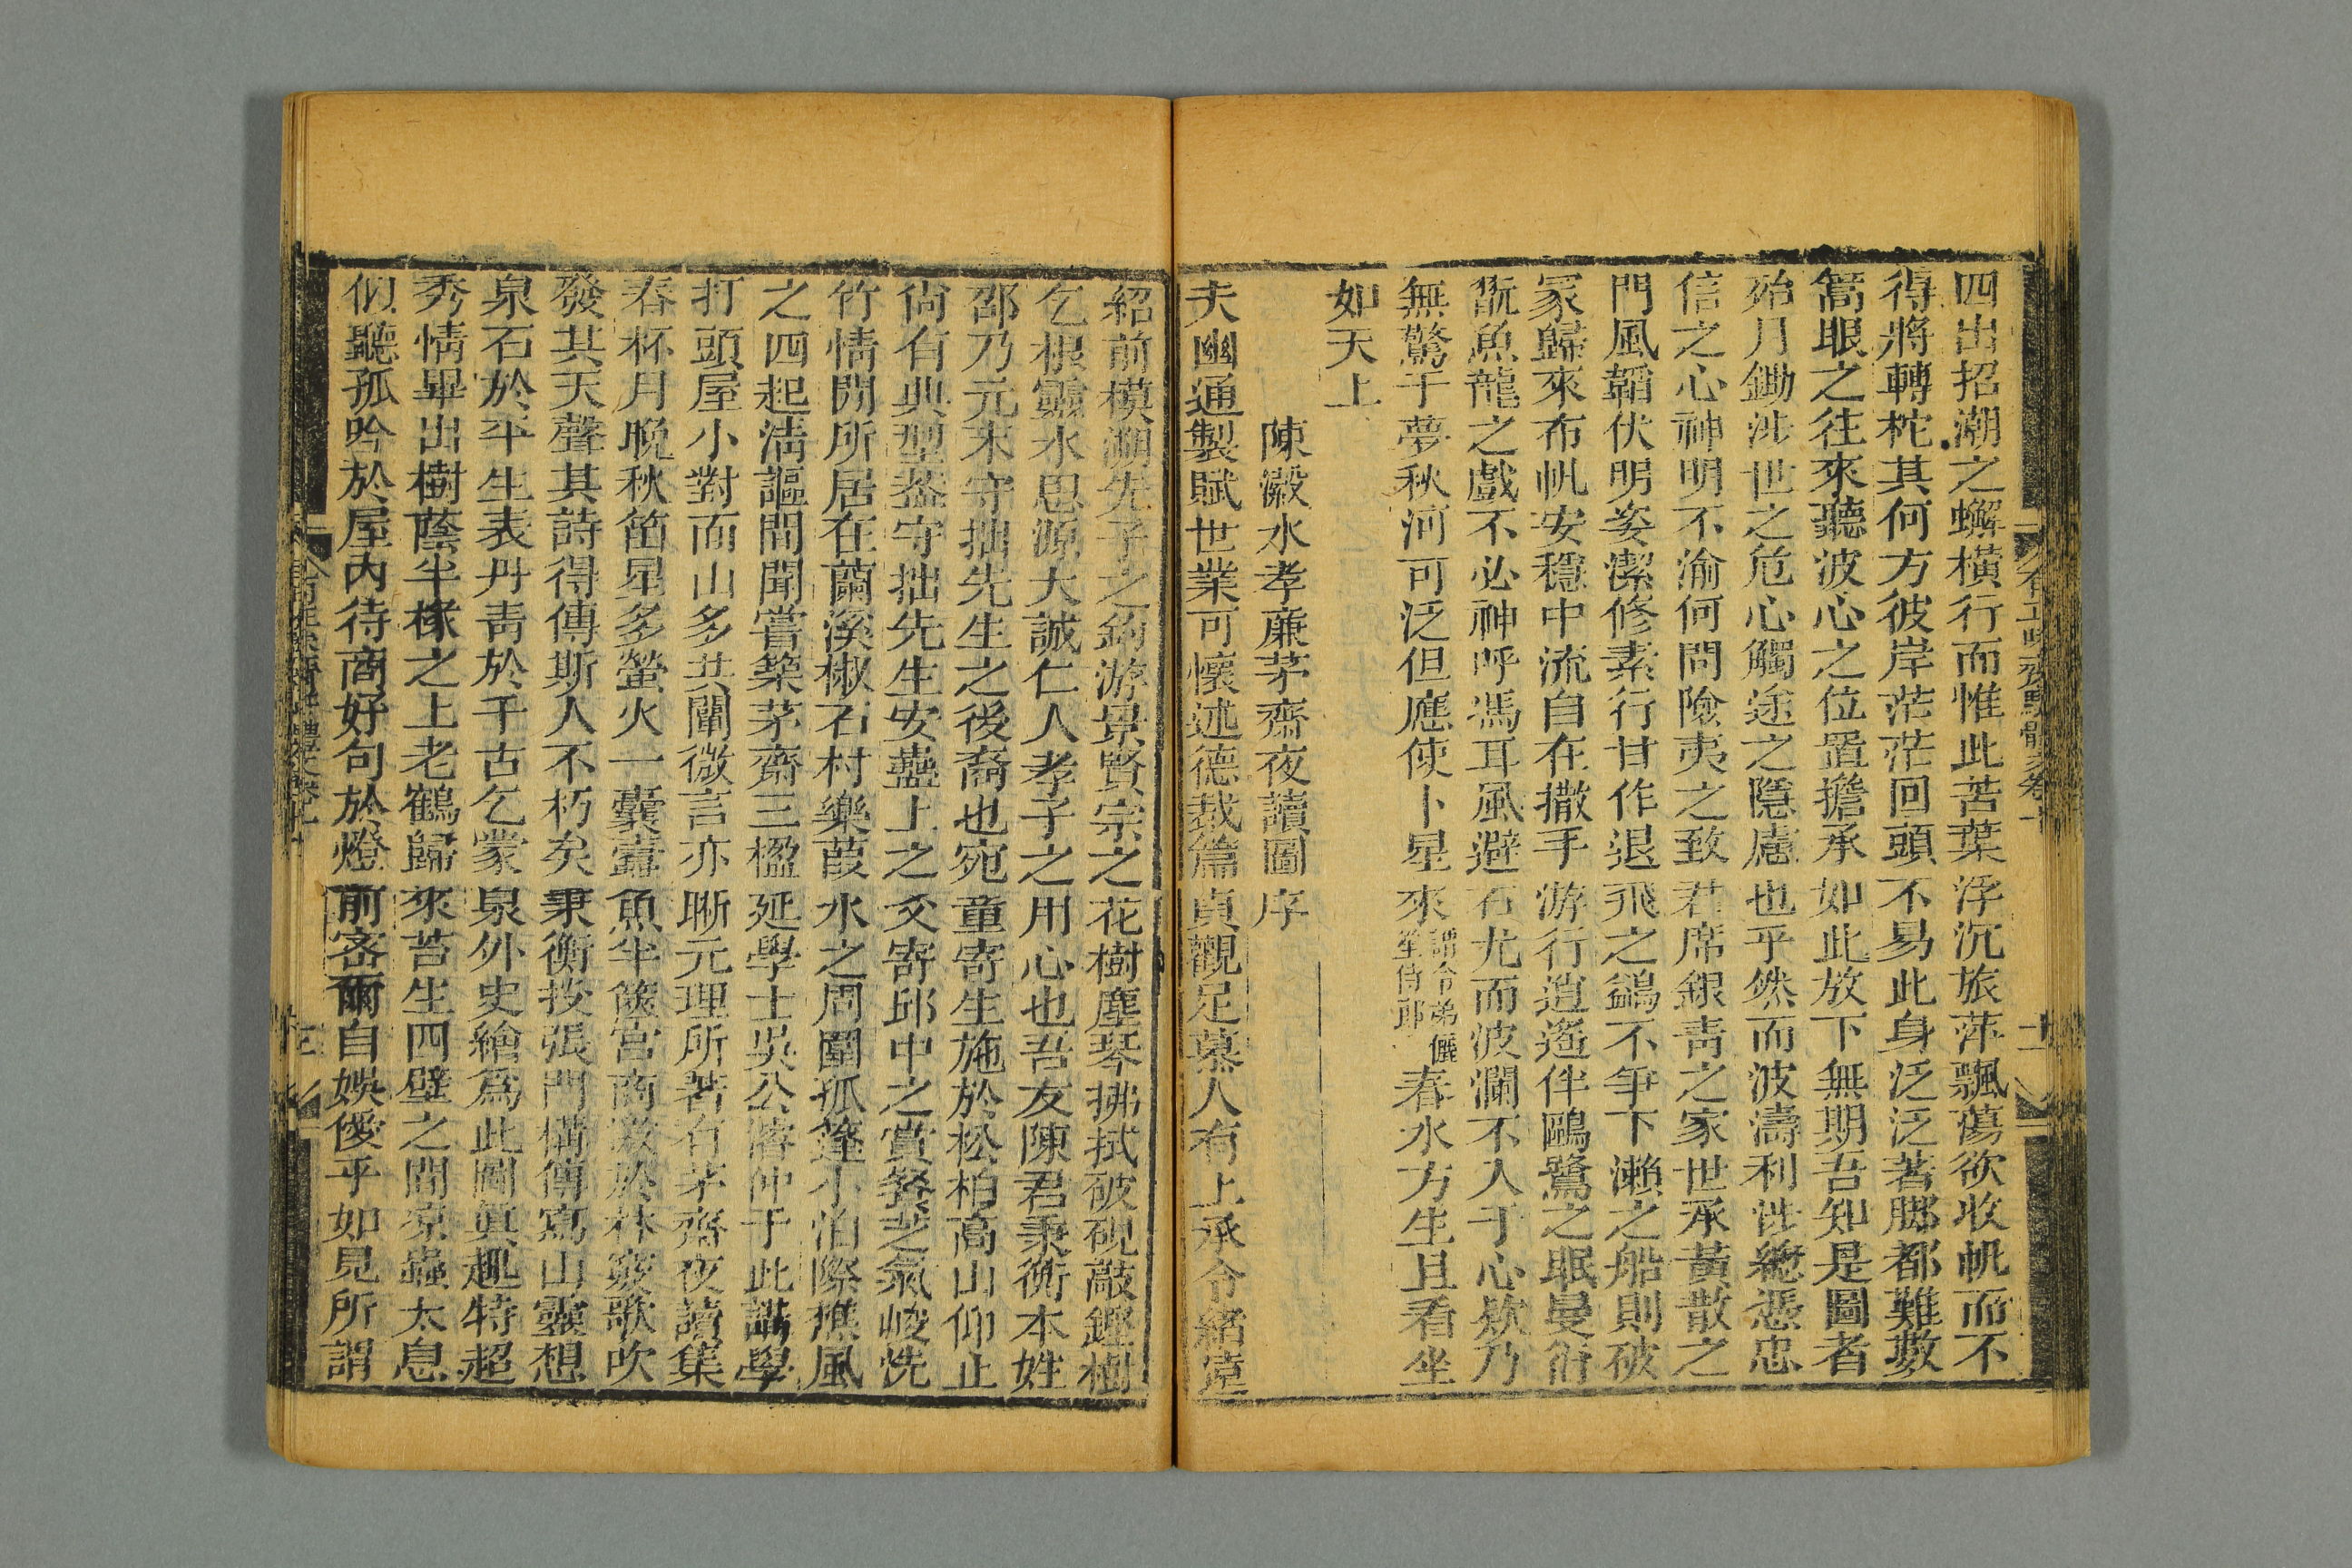 四出招潮之蠏橫行而惟此苦葉浮沉旅萍飄蕩欲收帆而不
得將轉柁其何方彼岸茫茫回頭不易此身泛泛著腳都難數
篙眼之往來聽波心之位置擔承如此放下無期吾知是圖者
殆月鋤涉世之危心觸途之隱慮也乎然而波濤利涉總憑忠
信之心神明不渝何問險夷之致君席銀青之家世承黃散之
門風韜伏明姿潔修素行甘作退飛之鷁不爭下瀨之船則破
冢歸來布帆安穩中流自在撒手游行逍遙伴鷗鷺之眠曼衍
翫魚龍之戲不必神呼馮耳風避石尤而波瀾不入于心欸乃
無驚于夢秋河可泛但應使卜星來
謂令弟儷
笙侍郎
春水方生且看坐
如天上
陳瀫水孝廉茅齋夜讀圖序
夫幽通製賦世業可懷述德裁篇貞觀足慕人有上承令緒遠
紹前模溯先子之釣游景賢宗之花樹塵琴拂拭破硯敲鏗樹
乞根靈水思源大誠仁人孝子之用心也吾友陳君秉衡本姓
邵乃元末守拙先生之後裔也宛童寄生施於松柏高山仰止
尙有典型葢守拙先生安蠱上之爻寄邱中之賞餐芝氣峻恍
竹情閒所居在蘭溪椒石村樂葭水之周圍孤篷小泊際樵風
之四起淸謳間聞嘗築茅齋三楹延學士吳公濬仲于此講學
打頭屋小對面山多共闡微言亦晰元理所著有茅齋夜讀集
春杯月晚秋笛星多螢火一囊蠹魚半篋宮商激於林竅歌吹
發其天聲其詩得傳斯人不朽矣秉衡技張門構傳寫山靈想
泉石於平生表丹靑於千古乞蒙泉外史繪爲此圖眞趣特超
秀情畢出樹蔭半椽之上老鶴歸來苔生四壁之間凉蟲太息
似聽孤吟於屋內待商好句於燈前窑爾自娛優乎如見所謂